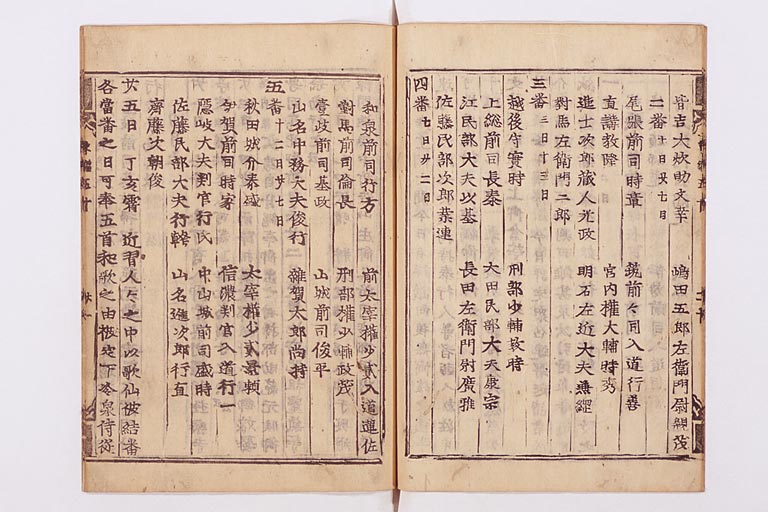 皆吉大炊助文幸　嶋田五郎左衛門尉親茂
二番　日廿七日
尾張前司時章　筑前々司入道行善
直講教隆　宮内權大輔時秀
進士次郎蔵人光政　明石左近大夫兼綱
對馬左衛門二郎
三番　三日十三日
越後守實時　刑部少輔教時
上総前司長泰　大田民部大夫康宗
江民部大夫以基　長田左衛門尉廣雅
佐藤民部次郎業連
四番　七日廿二日
和泉前司行方　前太宰權少貳入道蓮佐
對馬前司倫長　刑部權少輔政茂
壹岐前司基政　山城前司俊平
山名中務大夫俊行　雜賀太郎尚持
五番　十二日廿七日
秋田城介泰盛　太宰權少貳景頼
伊賀前司時家　信濃判官入道行一
隱岐大夫判官行氏　中山城前司盛時
佐藤民部大夫行幹　山名進次郎行直
齋藤次朝俊
廿五日丁亥霽　近習人々之中以歌仙被結番
各當番之日可奉五首和歌之由被定下冷泉侍從